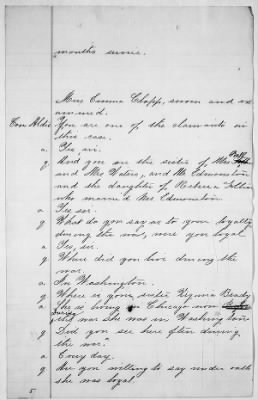 months since.
Miss Emma Chapp, sworn and ex
amined.
You are one of the claimants in
this case.
a. Yes, sir.
q. And you are the sister of Mrs.
and Mrs Waters, and Mr Edmonston
and the daughter of Rebecca
who married Mr Edmonston
a. Yes sir.
q. What do you say as to your loyalty
during the war, were you loyal
a. Yes, sir.
q. Where did you live during the
war.
a. In Washington.
q. Where is your sister Regina Brady
a. She is living in Chicago now
the war she was in Washington
q. Did you see here often during
the war?
a. Every day.
q. Are you willing to say under oath
she was loyal.
5